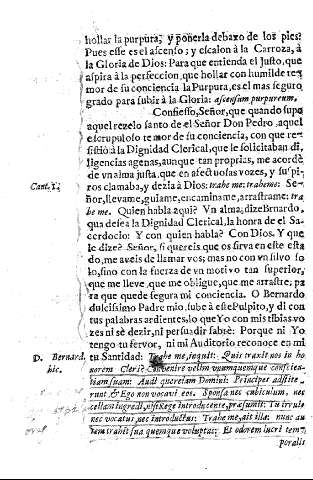 hollar la purpura, y ponerla debaxo de los pies?
Pues esse es el ascenso; y escalon à la Carroza, à
la Gloria de Dios: Para que entienda el Justo, que
aspira à la perfeccion, que hollar con humilde te-
mor de su conciencia la Purpura, es el mas seguro
grado para subir à la Gloria: ascensum purpureum.
Confiesso, Señor, que quando supo
aquel rezelo santo de el Señor Don Pedro, aquel
escrupuloso temor de su conciencia, con que re-
sistiò à la Dignidad Clerical, que le solicitaban di-
ligencias agenas, aunque tan proprias, me acordè
de vn alma justa, que en afectuosas vozes, y suspi-
Cant. 1. ros clamaba, y dezia à Dios: trahe me: traheme: Se-
ñor, llevame, guiame, encaminame, arrastrame: tra-
he me. Quien habla aqui? Vn alma, dize Bernardo,
qua desea la Dignidad Clerical, la honra de el Sa-
cerdocio: Y con quien habla? Con Dios. Y que
le dize? Señor, si quereis que os sirva en este esta
do, me aveis de llamar vos; mas no con vn silvo so
lo, sino con la fuerza de vn motivo tan superior,
que me lleve, que me obligue, que me arrastre; pa
ra que quede segura mi conciencia. O Bernardo
dulcissimo Padre mio, sube à este Pulpito, y di con
tus palabras ardientes, lo que Yo con mis tibias vo
zes ni sè dezir, ni persuadir sabrè: Porque ni Yo
tengo tu fervor, ni mi Auditorio reconoce en mi
D. Bernard. tu Santidad: Trahe me, inquit: Quis traxit nos in ho
hic. norem Cleri? Convenire velim vnumquemque conscien-
tiam suam: Audi querelam Domini: Principes adstite
runt, & Ego non vocavi eos. Sponsa nec cubiculum, nec
cellam ingredi, nisi Rege introducente, præsumit: Tu irruis
nec vocatus, nec introductus: Trahe me, ait illa: nunc au
tem trahit sua quemque voluptas: Et odorem lucri tem-
poralis